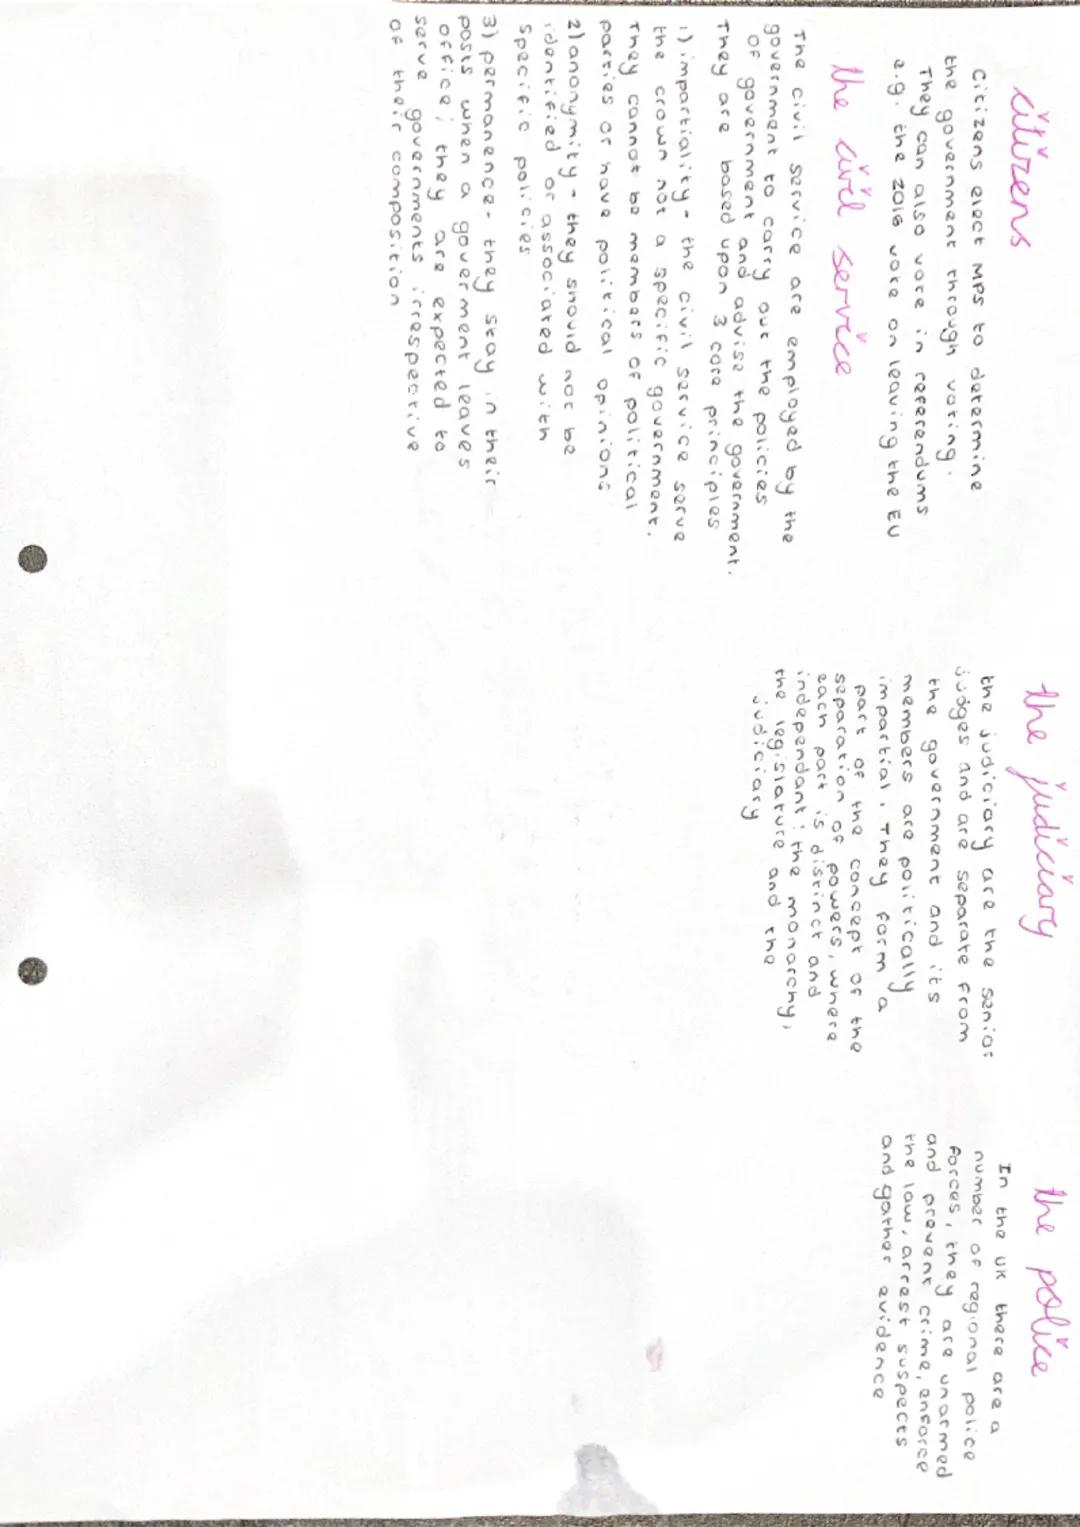 citizens
citizens elect MPs to determine
the government through voting.
They can also vote in referendums
e.g. the 2016 vote on leaving the EU
the civil service
The civil service are employed by the
government to carry out the policies
of government and advise the government.
They are based upon 3 core principles
1) impartiality - the civil service serve
the crown not a specific government.
They cannot be members of political
parties or have political opinions
2) anonymity - they should not be
identified or associated with
specific policies
3) permanence - they stay in their
posts when a goverment leaves
office; they are expected to
serve governments irrespective
of their composition
the judiciary
the judiciary are the senior
judges and are separate from
the government and its
members are politically
impartial. They form a
part of the concept of the
separation of powers, where
each part is distinct and
independant: the monarchy,
the legislature and the
judiciary
the police
In the UK there are a
number of regional police
forces, they are unarmed
and prevent crime, enforce
the law, arrest suspects
and gather evidence